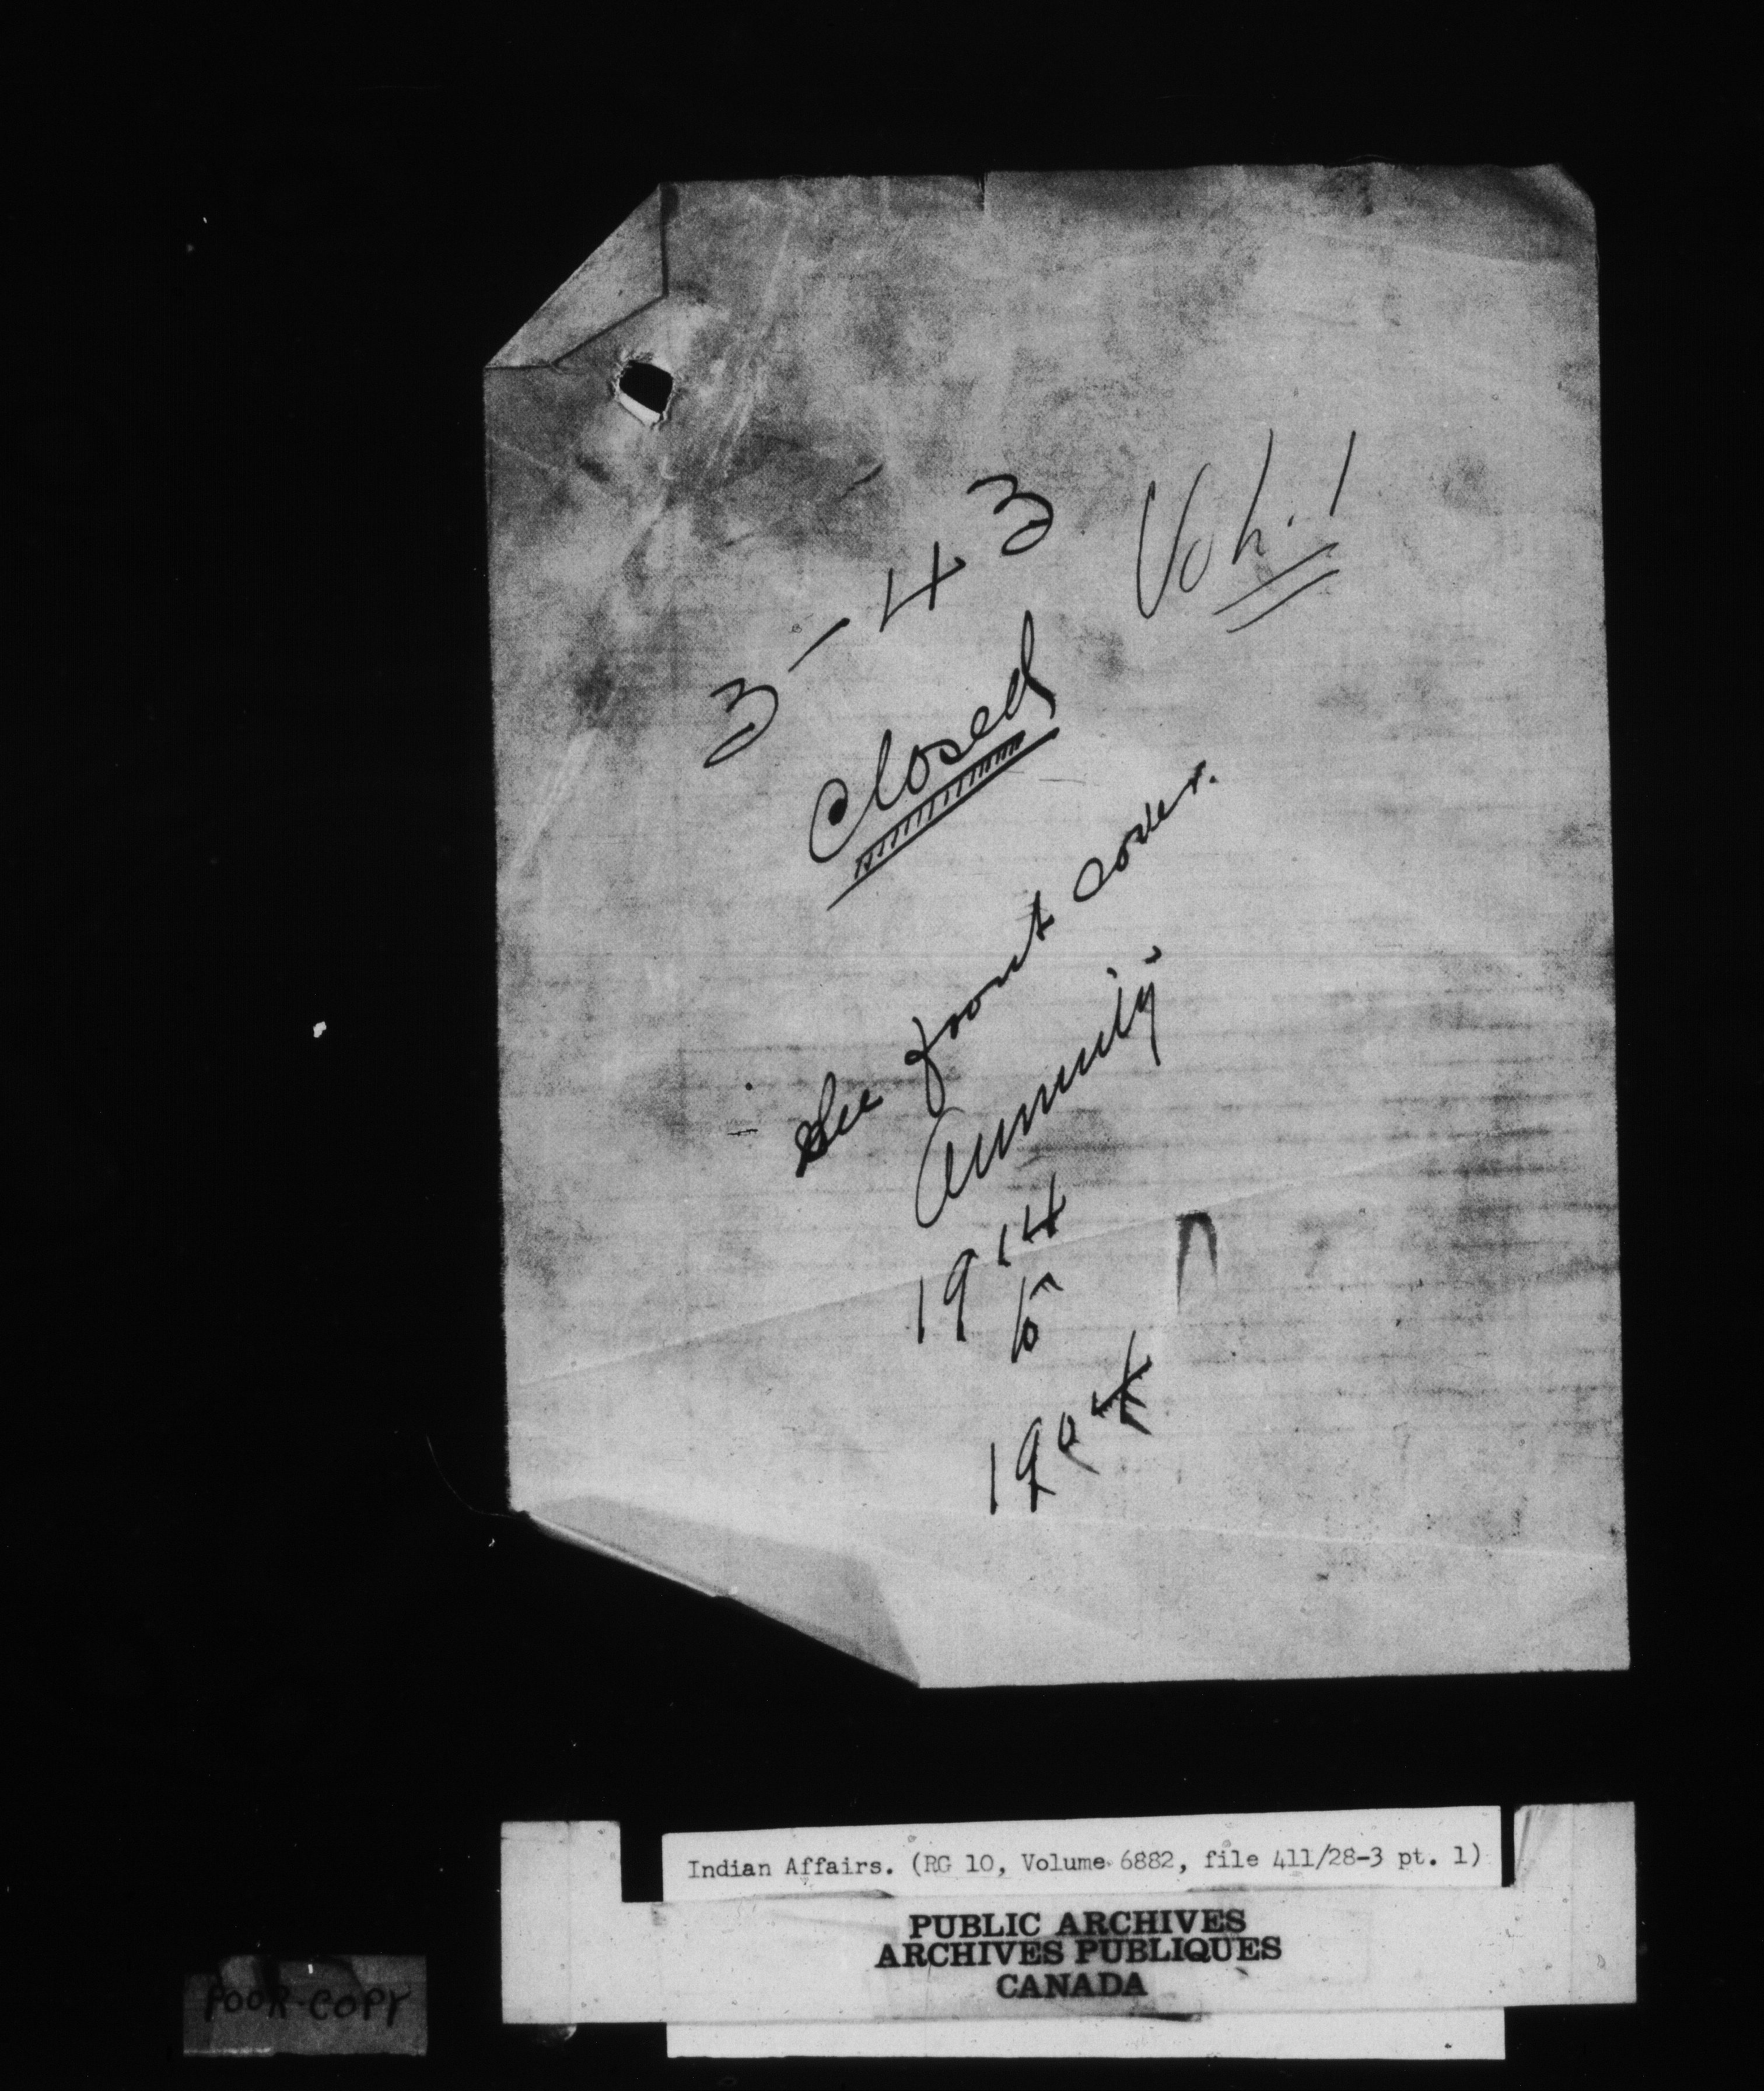 3-43 Vol. 1
Closed
See front cover.
Annuity
1914
to
1904
Indian Affairs. (RG 10, Volume 6882, file 411/28-3 pt. 1)
PUBLIC ARCHIVES
ARCHIVES PUBLIQUES
CANADA
POOR COPY